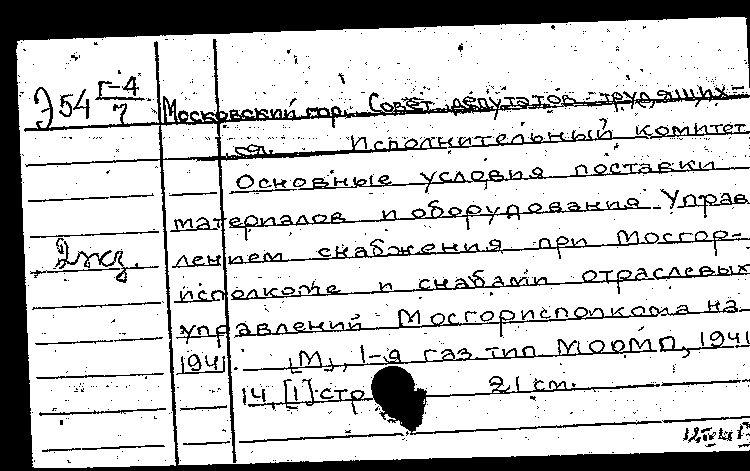 Э54 Г-4/7
Московский гор. Совет депутатов трудящих-
ся. Исполнительный комитет
Основные условия поставки
материалов и оборудования Управ
лением снабжения при Мосгор-
исполкоме и снабами отраслевых
управлений Мосгорисполкома на
1941. [М], 1-я газ. тип МООМП, 1941
14, [1] стр 21 см.
2 экз.